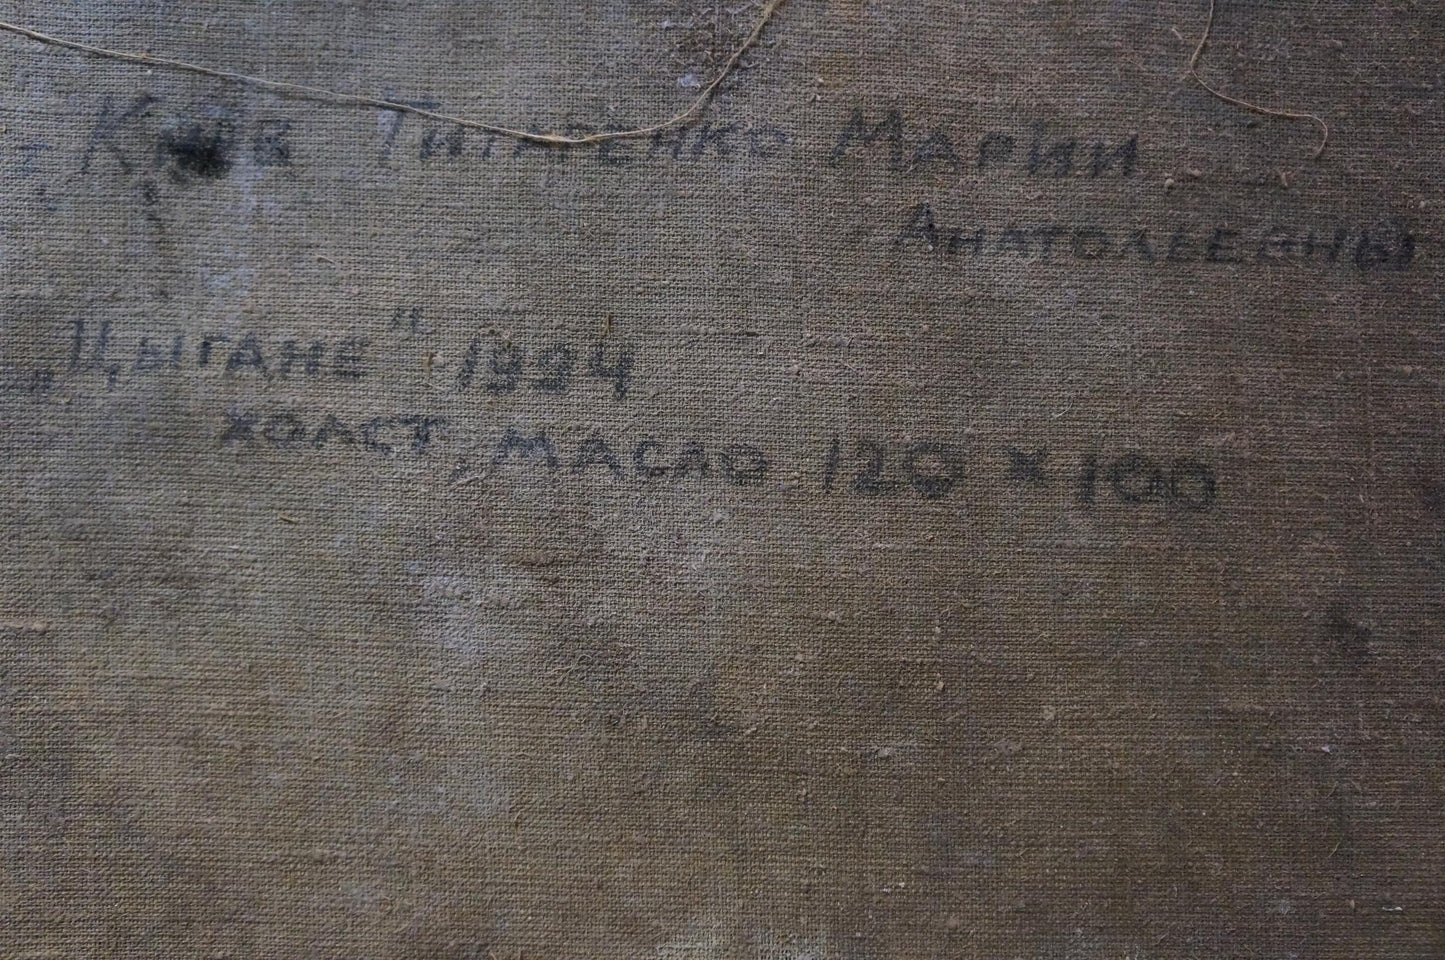 Киев Титаренко Марии
Анатольевны
„Цыгане" 1994
холст, масло 120 × 100